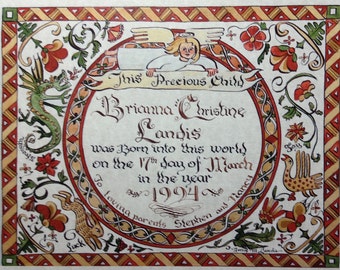 This Precious Child
Brianna Christine
Landis
was Born into this world
on the 17th day of March
in the year
1994
To loving parents Stephen and Nancy
Luck
Joy